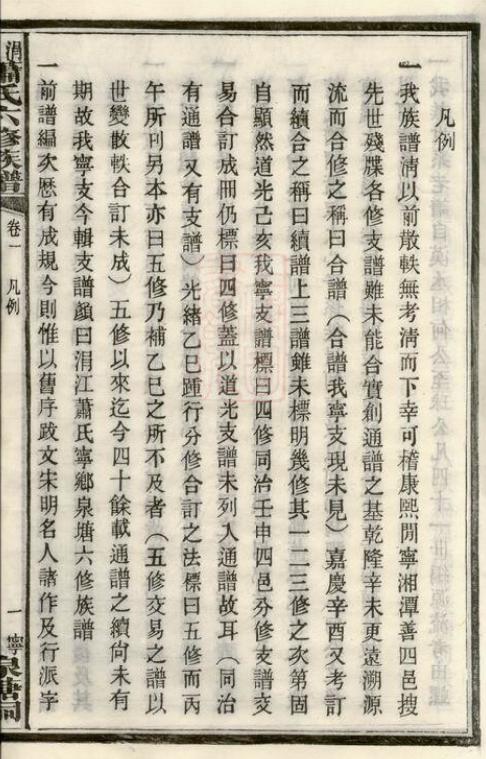 凡例
一我族譜淸以前散軼無考淸而下幸可稽康熙閒寧湘潭善四邑搜
先世殘牒各修支譜雖未能合實創通譜之基乾隆辛未更遠溯源
流而合修之稱曰合譜（合譜我寧支現未見）嘉慶辛酉又考訂
而續合之稱曰續譜上三譜雖未標明幾修其一二三修之次第固
自顯然道光己亥我寧支譜標曰四修同治壬申四邑分修支譜交
易合訂成冊仍標曰四修蓋以道光支譜未列入通譜故耳（同治
有通譜又有支譜）光緒乙巳踵行分修合訂之法標曰五修而丙
午所刊另本亦曰五修乃補乙巳之所不及者（五修交易之譜以
世變散軼合訂未成）五修以來迄今四十餘載通譜之續尙未有
期故我寧支今輯支譜顏曰涓江蕭氏寧鄉泉塘六修族譜
一前譜編次歷有成規今則惟以舊序跋文宋明名人諸作及行派字
涓江蕭氏六修族譜
卷一
凡例
一
寧
泉塘祠